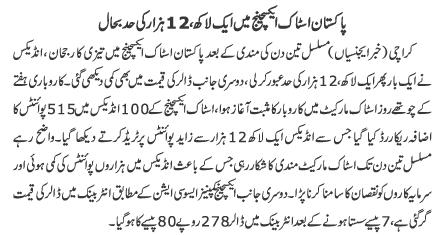 پاکستان اسٹاک ایکسچینج میں ایک لاکھ، 12 ہزار کی حد بحال
کراچی (خبر ایجنسیاں) مسلسل تین دن کی مندی کے بعد پاکستان اسٹاک ایکسچینج میں تیزی کا رجحان، انڈیکس
نے ایک بار پھر ایک لاکھ، 12 ہزار کی حد عبور کر لی، دوسری جانب ڈالر کی قیمت میں بھی کمی دیکھی گئی۔ کاروباری ہفتے
کے چوتھے روز اسٹاک مارکیٹ میں کاروبار کا مثبت آغاز ہوا، اسٹاک ایکسچینج کے 100 انڈیکس میں 515 پوائنٹس کا
اضافہ ریکارڈ کیا گیا جس سے انڈیکس ایک لاکھ 12 ہزار سے زاید پوائنٹس پر ٹریڈ کرتے دیکھا گیا۔ واضح رہے
مسلسل تین دن تک اسٹاک مارکیٹ مندی کا شکار رہی جس کے باعث انڈیکس میں ہزاروں پوائنٹس کی کمی ہوئی اور
سرمایہ کاروں کو نقصان کا سامنا کرنا پڑا۔ دوسری جانب ایکسچینج کمپنیز ایسوسی ایشن کے مطابق انٹر بینک میں ڈالر کی قیمت
گر گئی ہے، 7 پیسے سستا ہونے کے بعد انٹر بینک میں ڈالر 278 روپے 80 پیسے کا ہو گیا۔